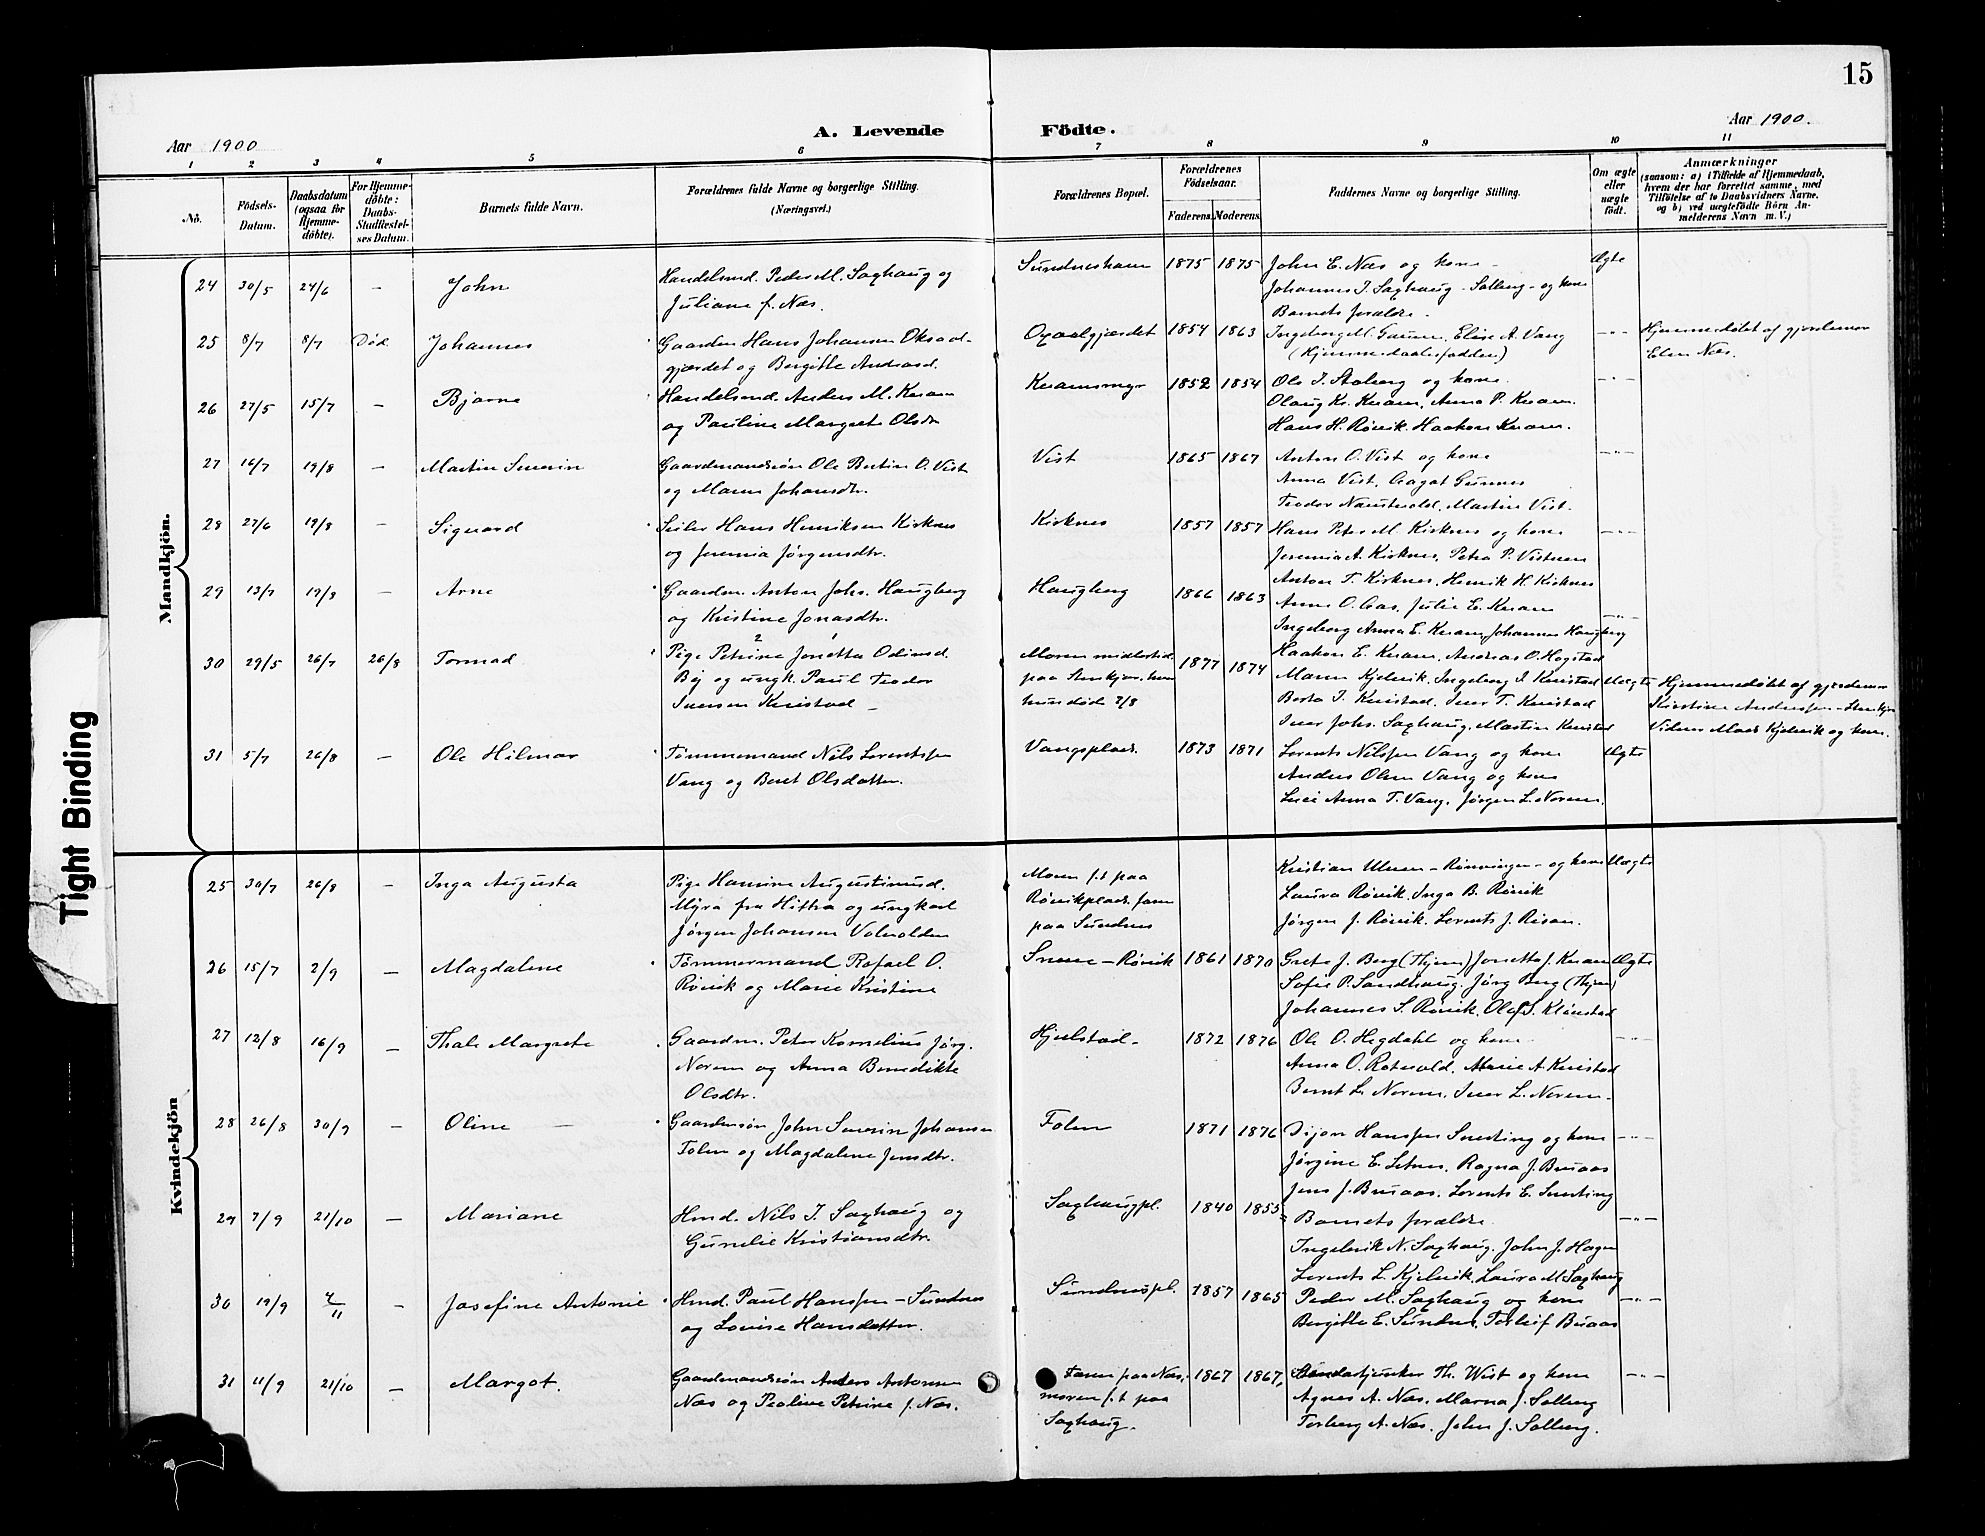 15
Aar 1900
A. Levende
Födte.
Aar 1900.
1 2 3 4 5 6 7 8 9 10 11
No.
Födsels-
Datum.
Daabsdatum
(ogsaa for
Hjemme-
döbte).
For Hjemme-
döbte:
Daabs-
Stadfestel-
ses Datum.
Barnets fulde Navn.
Forældrenes fulde Navne og borgerlige Stilling.
(Næringsvei.)
Forældrenes Bopæl.
Forældrenes
Födselsaar.
Faderens. Moderens.
Faddernes Navne og borgerlige Stilling.
Om ægte
eller
uægte
födt.
Anmærkninger
(saasom: a) i Tilfælde af Hjemmedaab,
hvem der har forrettet samme, med
Tilföielse af to Daabsvidners Navne,
og b) ved uægtefödte Börn An-
melderens Navn m. V.)
Mandkjön.
24 30/5 24/6 – John
Handelsmd. Peder M. Saxhaug og
Juliane f. Næs.
Sundneshavn 1875 1875
John E. Næs og kone –
Johannes I. Saxhaug – Solberg – og kone
Barnets forældre.
Ægte
25 8/7 8/7 Død Johannes
Gaardm. Hans Johansen Oksaal-
gjærdet og Bergitte Andreasd.
Oxaalgjærdet 1854 1863
Ingeborg M. Gaunm, Elise A. Vang
(Hjemmedaabsfaddere)
–"–
Hjemmedøbt af gjordemor
Elen Næs.
26 27/5 15/7 – Bjarne
Handelsmd. Anders M. Kvam
og Pauline Margrete Olsdr
Kvamsmyr 1852 1854
Ole I. Stoberg og kone
Olaug Kr. Kvam, Anna P. Kvam.
Hans H. Rövik. Haakon Kvam.
–"–
27 16/7 19/8 – Martin Severin
Gaardmandsøn Ole Bertin O. Vist
og Maren Johansdtr.
Vist 1865 1867
Anton O. Vist og kone
Anna Vist, Aagot Gunnes
Teodor Naustvold, Martin Vist.
–"–
28 27/6 19/8 – Sigvard
Seiler Hans Henriksen Kirknes
og Jeremia Jørgensdtr.
Kirknes 1857 1857
Hans Peter M. Kirknes og kone
Jeremia A. Kirknes, Petra P. Vistnes
Anton T. Kirknes, Henrik H. Kirknes
–"–
29 13/7 19/8 – Arne
Gaardm. Anton Johs. Haugberg
og Kristine Jonasdtr.
Haugberg 1866 1863
Anne O. Aas, Julie E. Kvam
Ingeborg Anna E. Kvam, Johannes Haugberg
Haakon E. Kvam, Andreas O. Hogstad
–"–
30 29/5 26/7 26/8 Tormod
Pige Petrine Jonetta Odinsd.
By og ungk. Paul Teodor
Iversen Kvistad –
Moren midlertid.
paa Stenkjær, hvor
hun døde 2/8
1877 1874
Maren Kjelvik, Ingeborg I. Kvistad
Berta I. Kvistad, Iver T. Kvistad
Iver Johs. Saxhaug, Martin Kvistad
Uægte
Hjemmedøbt af gjordemor
Kirstine Anderssen – Stenkjær
Vidner Mads Kjelvik og kone.
31 5/7 26/8 – Ole Hilmar
Tømmermand Nils Lorentssen
Vang og Beret Olsdatter.
Vangsplads. 1873 1871
Lorents Nilssen Vang og kone
Anders Olsen Vang og kone
Lucie Anna T. Vang, Jørgen L. Norem.
Ægte
Kvindekjön
25 30/7 26/8 – Inga Augusta
Pige Hansine Augustinusd.
Myra fra Hittra og ungkarl
Jørgen Johansen Volvolden
Moren f.t paa
Røvikplads, faren
paa Sundnes
Kristian Ulven – Rønningen – og kone
Laura Røvik, Inga B. Røvik
Jørgen J. Røvik, Lorents J. Risan.
Uægte
26 15/7 2/9 – Magdalene
Tømmermand Rafael O.
Røvik og Marie Kristine
Sneve – Røvik 1861 1870
Grete J. Berg (Hjem) Jonetta J. Kvam
Sofie P. Sandhaug, Jørg Berg (Hjem)
Johannes S. Røvik, Olaf S. Klønstad
Ægte
27 12/8 16/9 – Thale Margrete
Gaardm. Peter Kornelius Jørg.
Norem og Anna Benedikte
Olsdtr.
Hjelstad – 1872 1876
Ole O. Hegdahl og kone
Anna O. Rotvold, Marie A. Kvistad
Bernt L. Norem, Iver L. Norem –
–"–
28 26/8 30/9 – Oline –
Gaardmsøn John Severin Johansen
Folen og Magdalene Jensdtr.
Folen 1871 1876
Sijon Hanssen Snerting og kone
Jørgine E. Letnes, Ragna J. Buaas
Jens J. Buaas, Lorents E. Snerting
–"–
29 7/9 21/10 – Mariane
Hmd. Nils I. Saxhaug og
Gunelie Kristiansdtr.
Saxhaugpl. 1840 1853
Barnets forældre
Ingebrik N. Saxhaug, John J. Hagen
Lorents L. Kjelvik, Laura M. Saxhaug
–"–
30 19/9 4/11 – Josefine Antonie
Hmd. Paul Hanssen – Sundnes
og Lovise Hansdatter.
Sundnespl. 1857 1865
Peder M. Saxhaug og kone
Bergitte E. Sundnes, Torleif Buaas
–"–
31 11/9 21/10 – Margot.
Gaardmandsøn Anders Antonsen
Næs og Pauline Petrine f. Næs.
Faren paa Næs,
moren f.t paa
Saxhaug.
1867 1867,
Th. Wist og kone
Agnes A. Næs, Marna J. Solberg
Torberg A. Næs, John J. Solberg.
–"–
Tight Binding